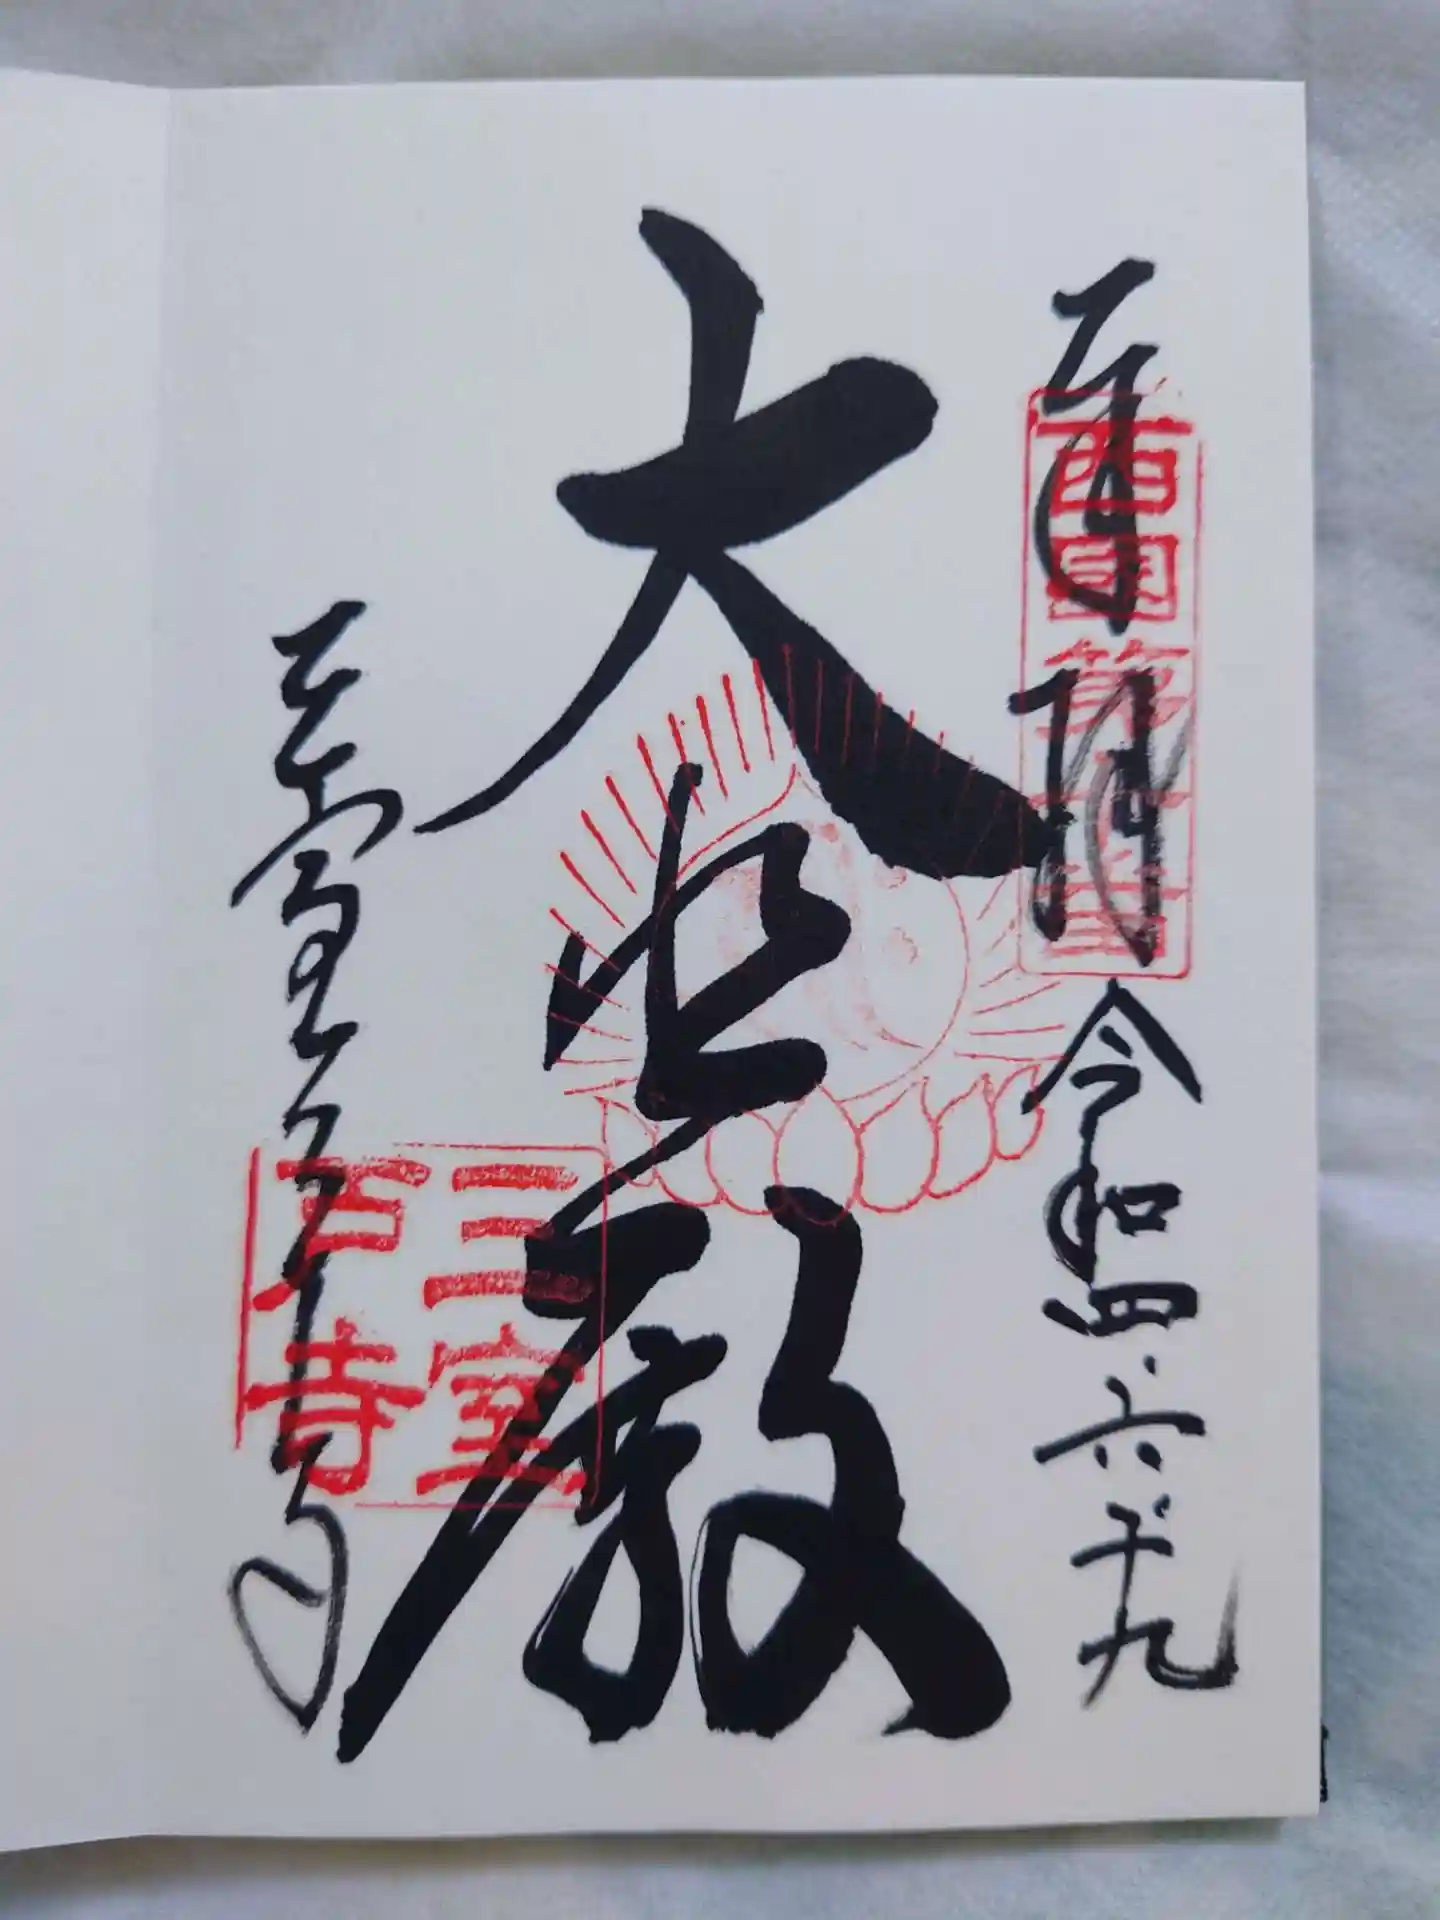 奉拝
西国第十番
令和四・六・十九
大悲殿
三室
戸寺